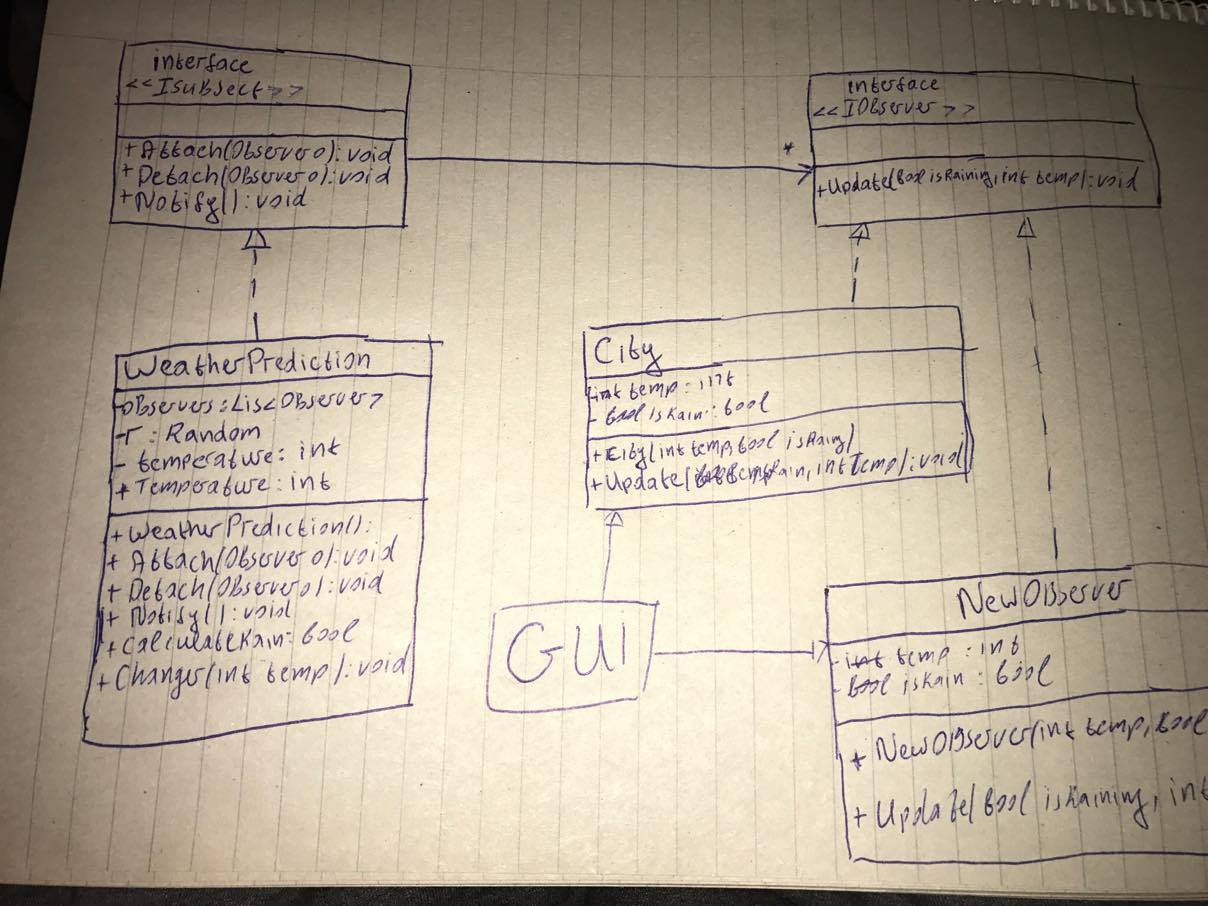 interface
<<Isubsect>>
+Attach(Observer o): void
+Detach(Observer o): void
+Notify(): void
interface
<<IObserver>>
*
+Update(bool isRaining, int temp): void
WeatherPrediction
-observers: Lis<Observer>
-r: Random
- temperature: int
+ Temperature: int
+WeatherPrediction():
+ Attach(Observer o): void
+ Detach(Observer o): void
+ Notify(): void
+ CalculateRain: bool
+ Changer(int temp): void
City
temp: int
- bool isRain: bool
+City(int temp, bool isRaing)
+Update( Rain, int Temp): void
GUI
NewObserver
-int temp: int
-bool isRain: bool
+ NewObserver(int temp, bool
+ Update(bool isRaining, int